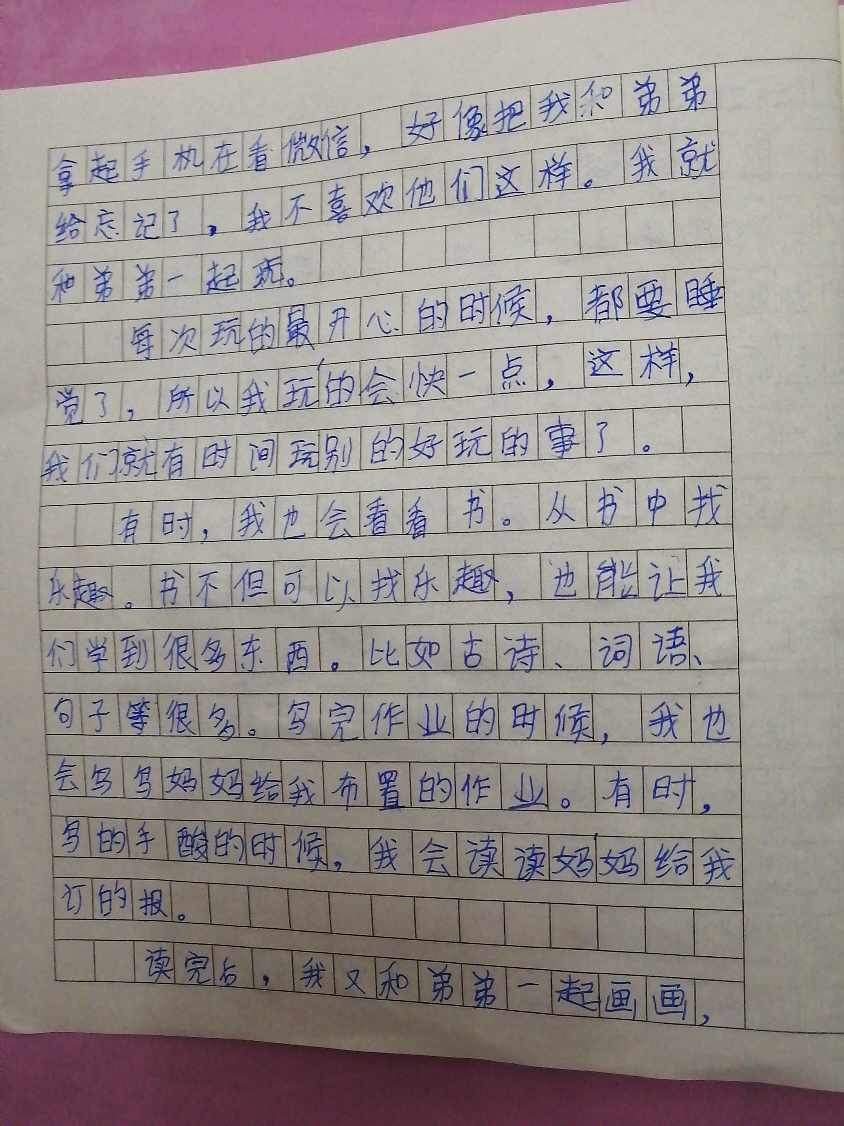 拿起手机在看微信，好像把我和弟弟
给忘记了，我不喜欢他们这样。我就
和弟弟一起玩。
每次玩的最开心的时候，都要睡
觉了，所以我玩的会快一点，这样，
我们就有时间玩别的好玩的事了。
有时，我也会看看书。从书中找
乐趣。书不但可以找乐趣，也能让我
们学到很多东西。比如古诗、词语、
句子等很多。写完作业的时候，我也
会写写妈妈给我布置的作业。有时，
写的手酸的时候，我会读读妈妈给我
订的报。
读完后，我又和弟弟一起画画，